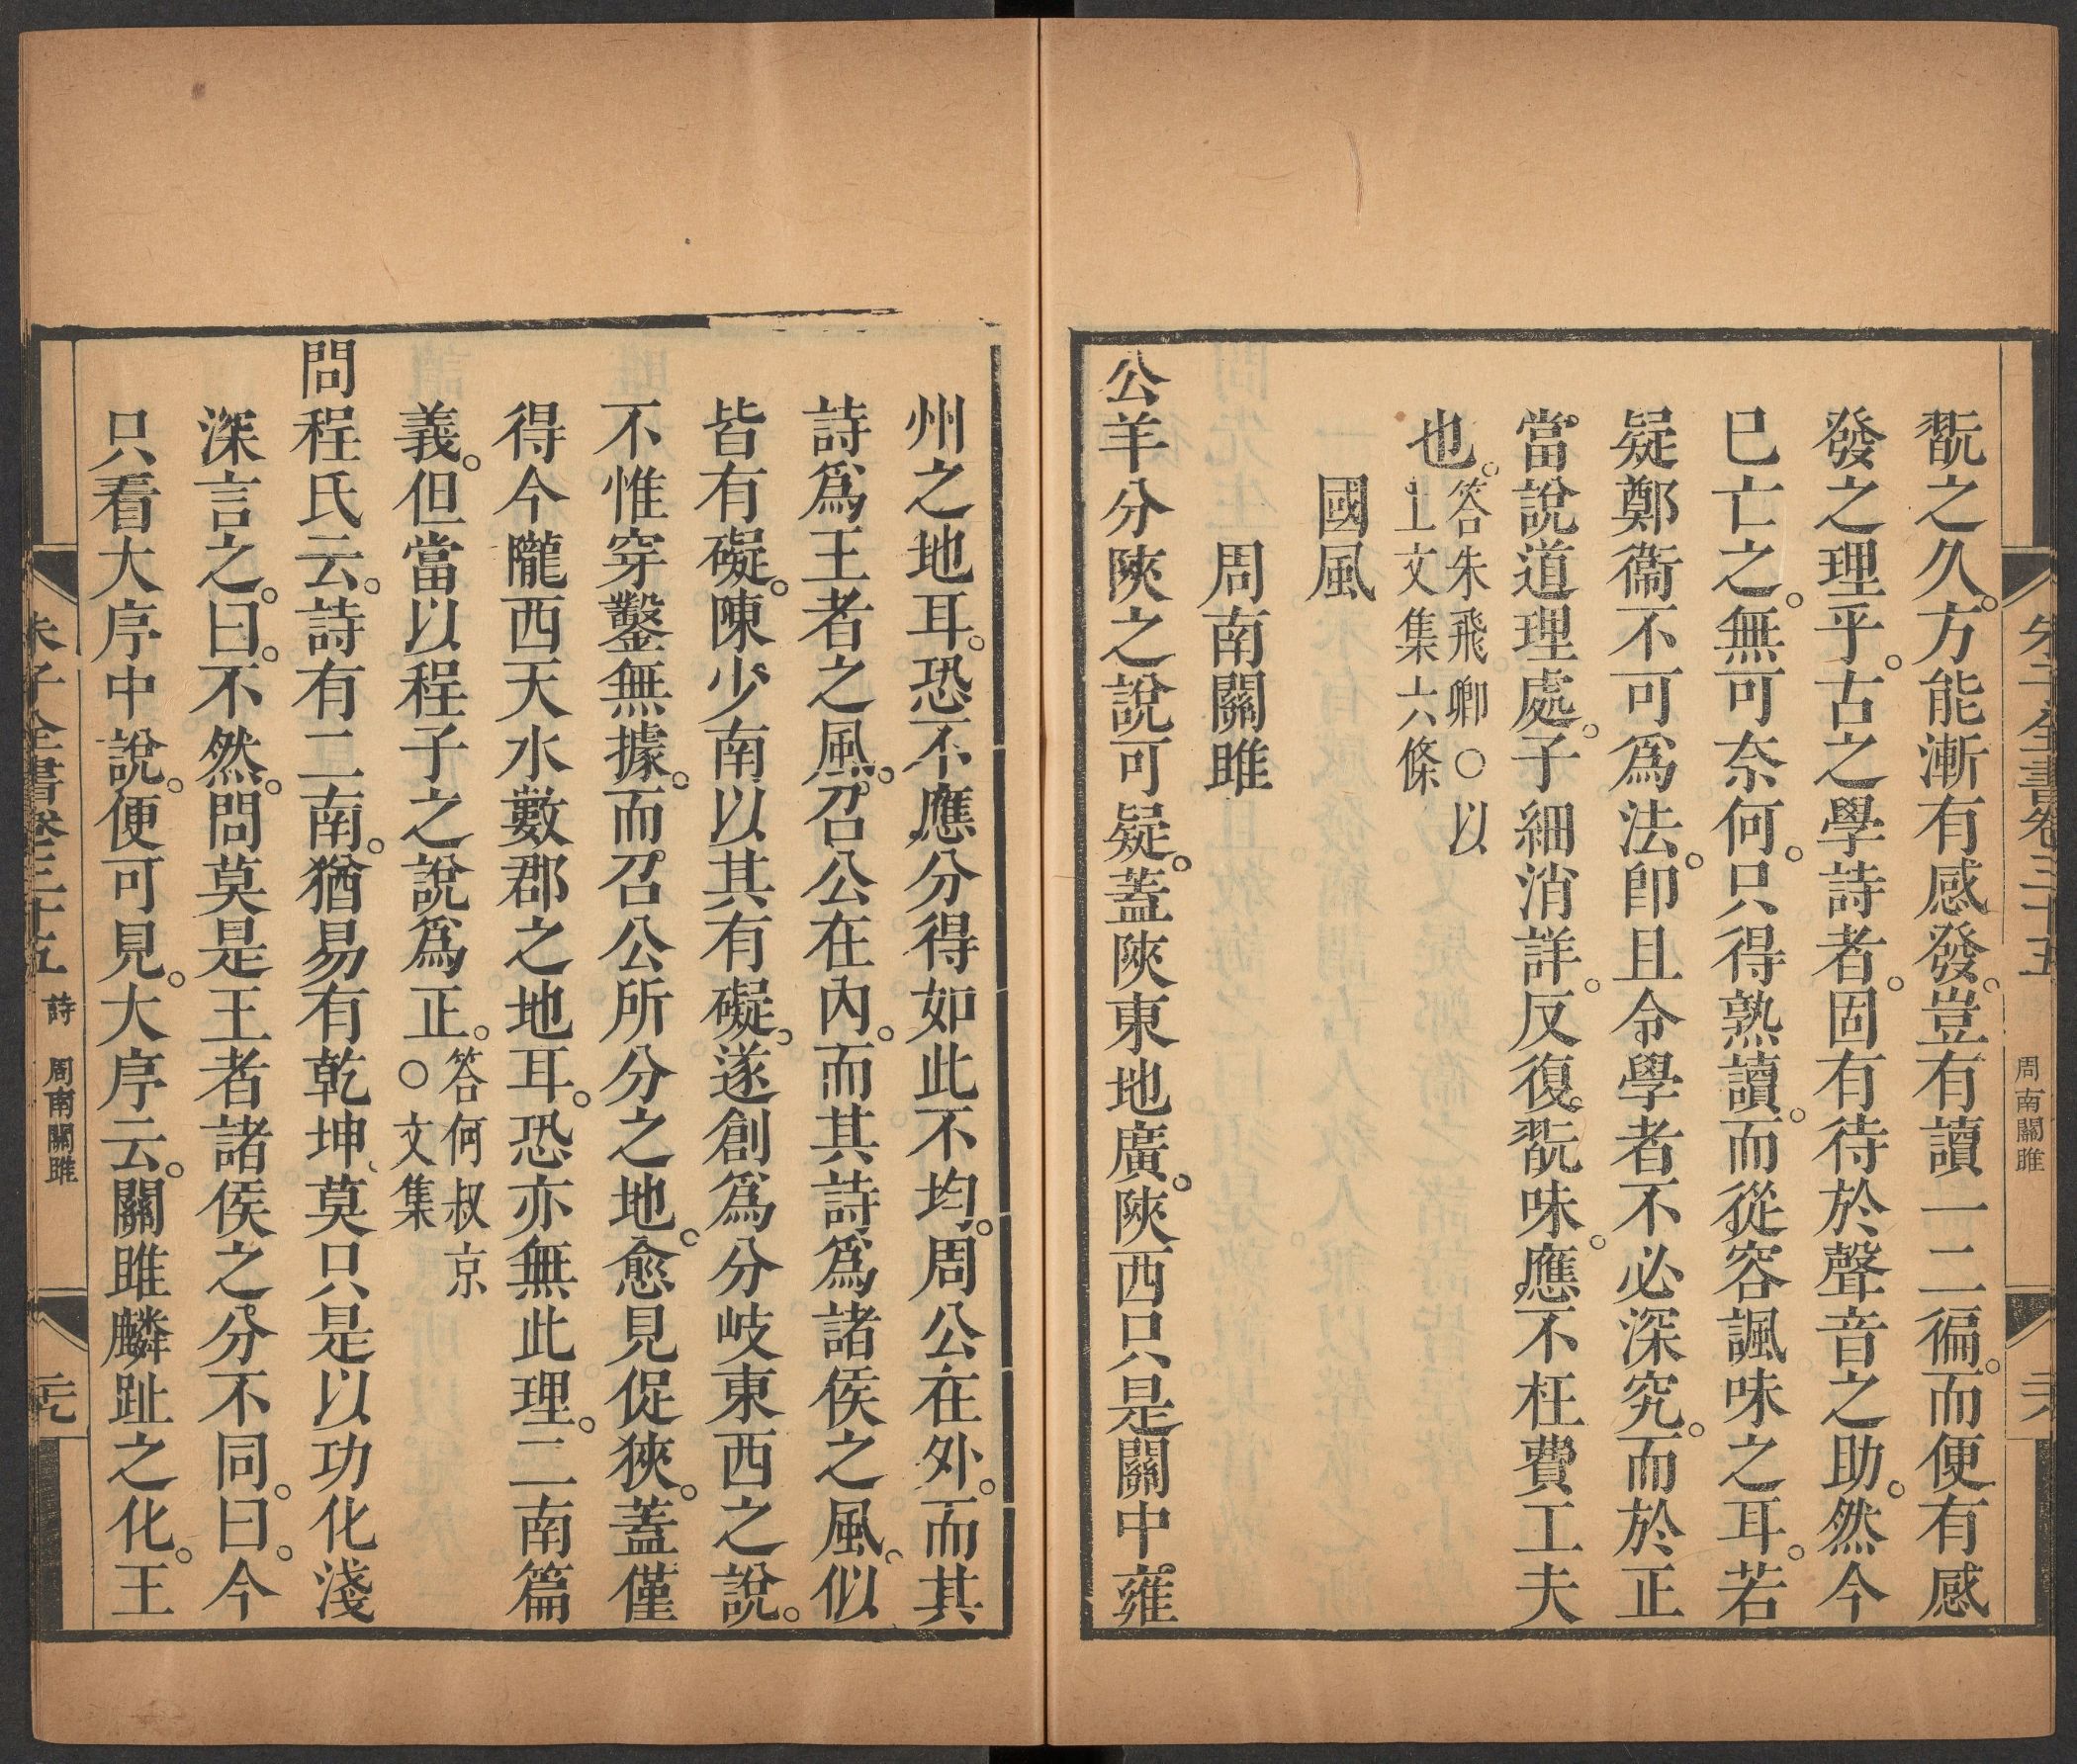 朱子全書卷三十五
周南關雎
翫之久。方能漸有感發。豈有讀一二徧。而便有感
發之理乎。古之學詩者。固有待於聲音之助。然今
已亡之。無可奈何。只得熟讀。而從容諷味之耳。若
疑鄭衞不可爲法。卽且令學者不必深究。而於正
當說道理處。子細消詳。反復翫味。應不枉費工夫
也。答朱飛卿○以
上文集六條
國風
周南關雎
公羊分陝之說可疑。蓋陝東地廣。陝西只是關中雍
州之地耳。恐不應分得如此不均。周公在外。而其
詩爲王者之風。召公在內。而其詩爲諸侯之風。似
皆有礙。陳少南以其有礙。遂創爲分岐東西之說。
不惟穿鑿無據。而召公所分之地。愈見促狹。蓋僅
得今隴西天水數郡之地耳。恐亦無此理。二南篇
義。但當以程子之說爲正。答何叔京
○文集
問程氏云。詩有二南。猶易有乾坤、莫只是以功化淺
深言之。曰。不然。問莫是王者諸侯之分不同。曰。今
只看大序中說。便可見。大序云。關雎麟趾之化。王
朱子全書卷三十五 詩 周南關雎